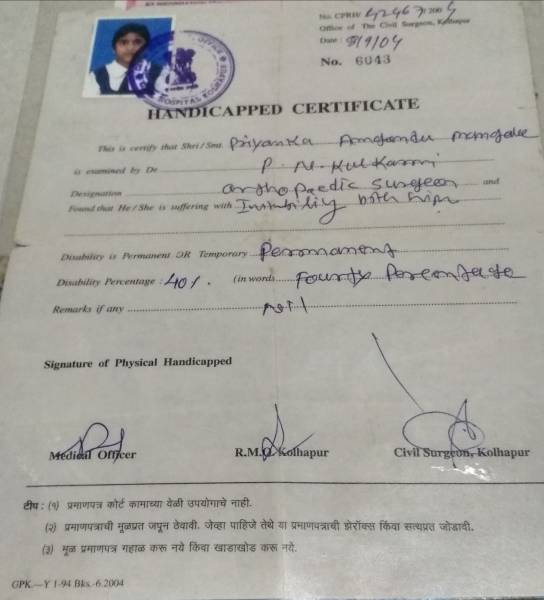 No. CPRH/ 42467/200 4
Office of The Civil Surgeon, Kolhapur
Date : 8/9/04
No. 6043
HANDICAPPED CERTIFICATE
This is certify that Shri/Smt. Priyanka
is examined by Dr P. N. Kulkarni
Designation orthopaedic surgeon and
Found that He/She is suffering with Instability both hip
Disability is Permanent OR Temporary Permanent
Disability Percentage : 40%. (in words Fourty Percentage
Remarks if any nil
Signature of Physical Handicapped
Medical Officer R.M.O. Kolhapur Civil Surgeon, Kolhapur
टीप : (१) प्रमाणपत्र कोर्ट कामाच्या वेळी उपयोगाचे नाही.
(२) प्रमाणपत्राची मूळप्रत जपून ठेवावी. जेव्हा पाहिजे तेथे या प्रमाणपत्राची झेरॉक्स किंवा सत्यप्रत जोडावी.
(३) मूळ प्रमाणपत्र गहाळ करू नये किंवा खाडाखोड करू नये.
GPK.—Y 1-94 Bks.-6.2004